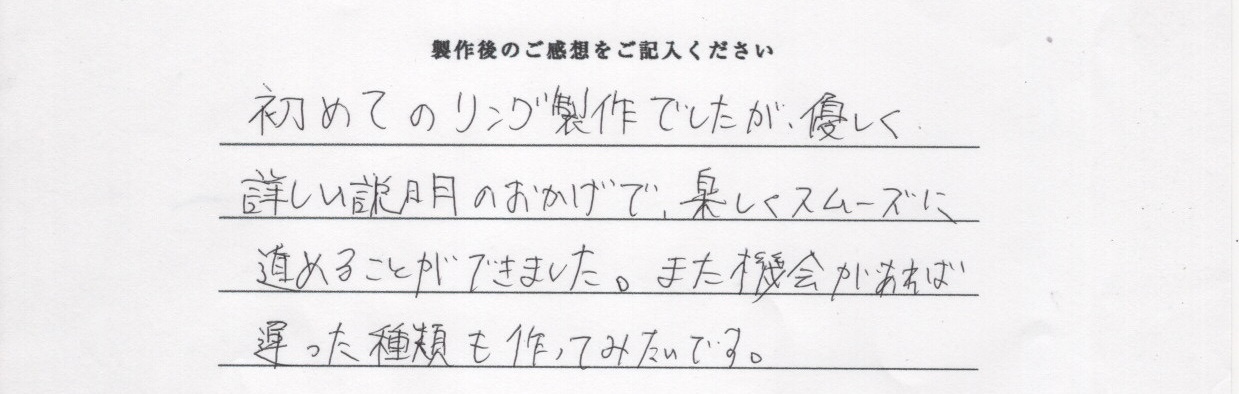 製作後のご感想をご記入ください
初めてのリング製作でしたが、優しく
詳しい説明のおかげで、楽しくスムーズに
進めることができました。また機会があれば
違った種類も作ってみたいです。